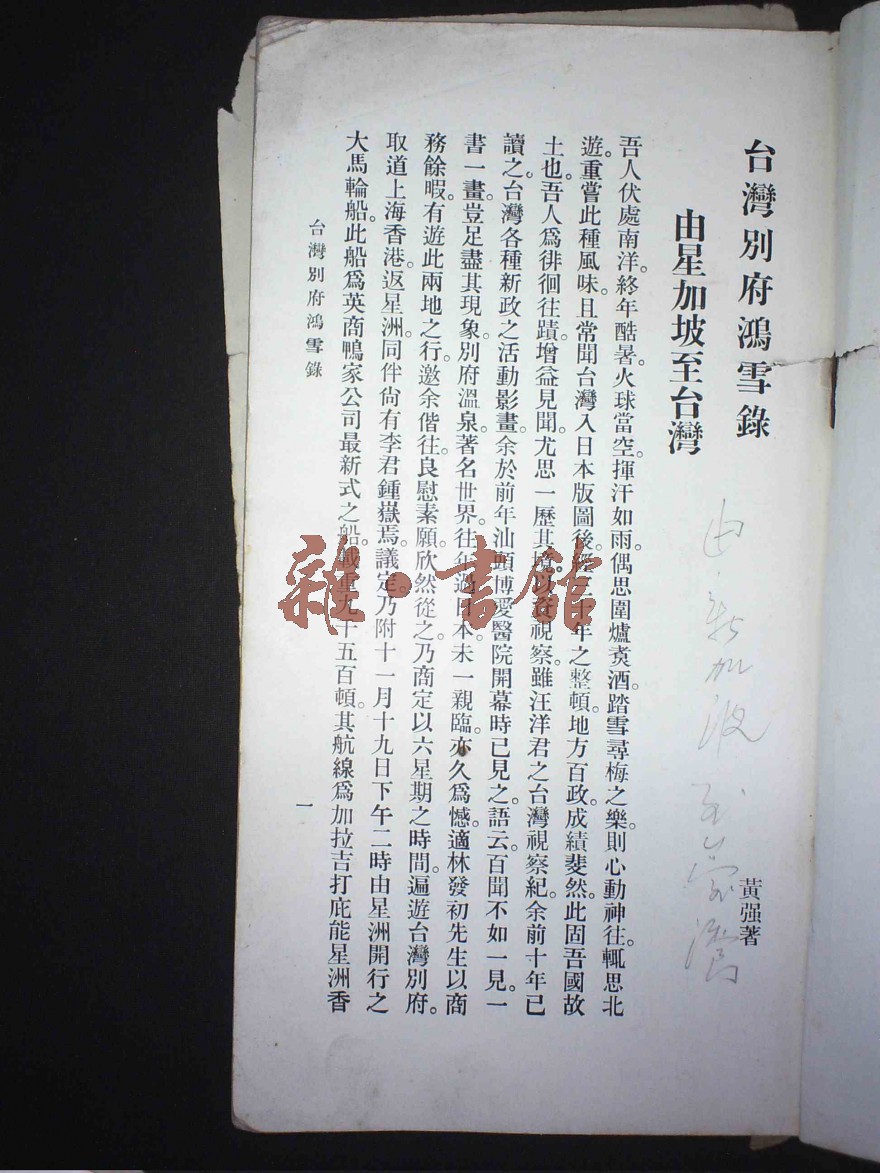 台灣別府鴻雪錄
黃强著
由星加坡至台灣
吾人伏處南洋。終年酷暑。火球當空。揮汗如雨。偶思圍爐煑酒。踏雪尋梅之樂。則心動神往。輒思北
遊。重嘗此種風味。且常聞台灣入日本版圖後。十年之整頓。地方百政。成績斐然。此固吾國故
土也。吾人爲徘徊往蹟。增益見聞。尤思一歷其視察。雖汪洋君之台灣視察紀。余前十年已
讀之。台灣各種新政之活動影畫。余於前年汕頭博愛醫院開幕時已見之。語云。百聞不如一見。一
書一畫。豈足盡其現象。別府溫泉。著名世界。往年過日本。未一親臨。亦久爲憾。適林發初先生以商
務餘暇。有遊此兩地之行。邀余偕往。良慰素願。欣然從之。乃商定以六星期之時間。遍遊台灣別府。
取道上海香港。返星洲。同伴尙有李君鍾嶽焉。議定。乃附十一月十九日下午二時由星洲開行之
大馬輪船。此船爲英商鴨家公司最新式之船。載重九千五百頓。其航線爲加拉吉打庇能星洲香
台灣別府鴻雪錄
一
雜·書館